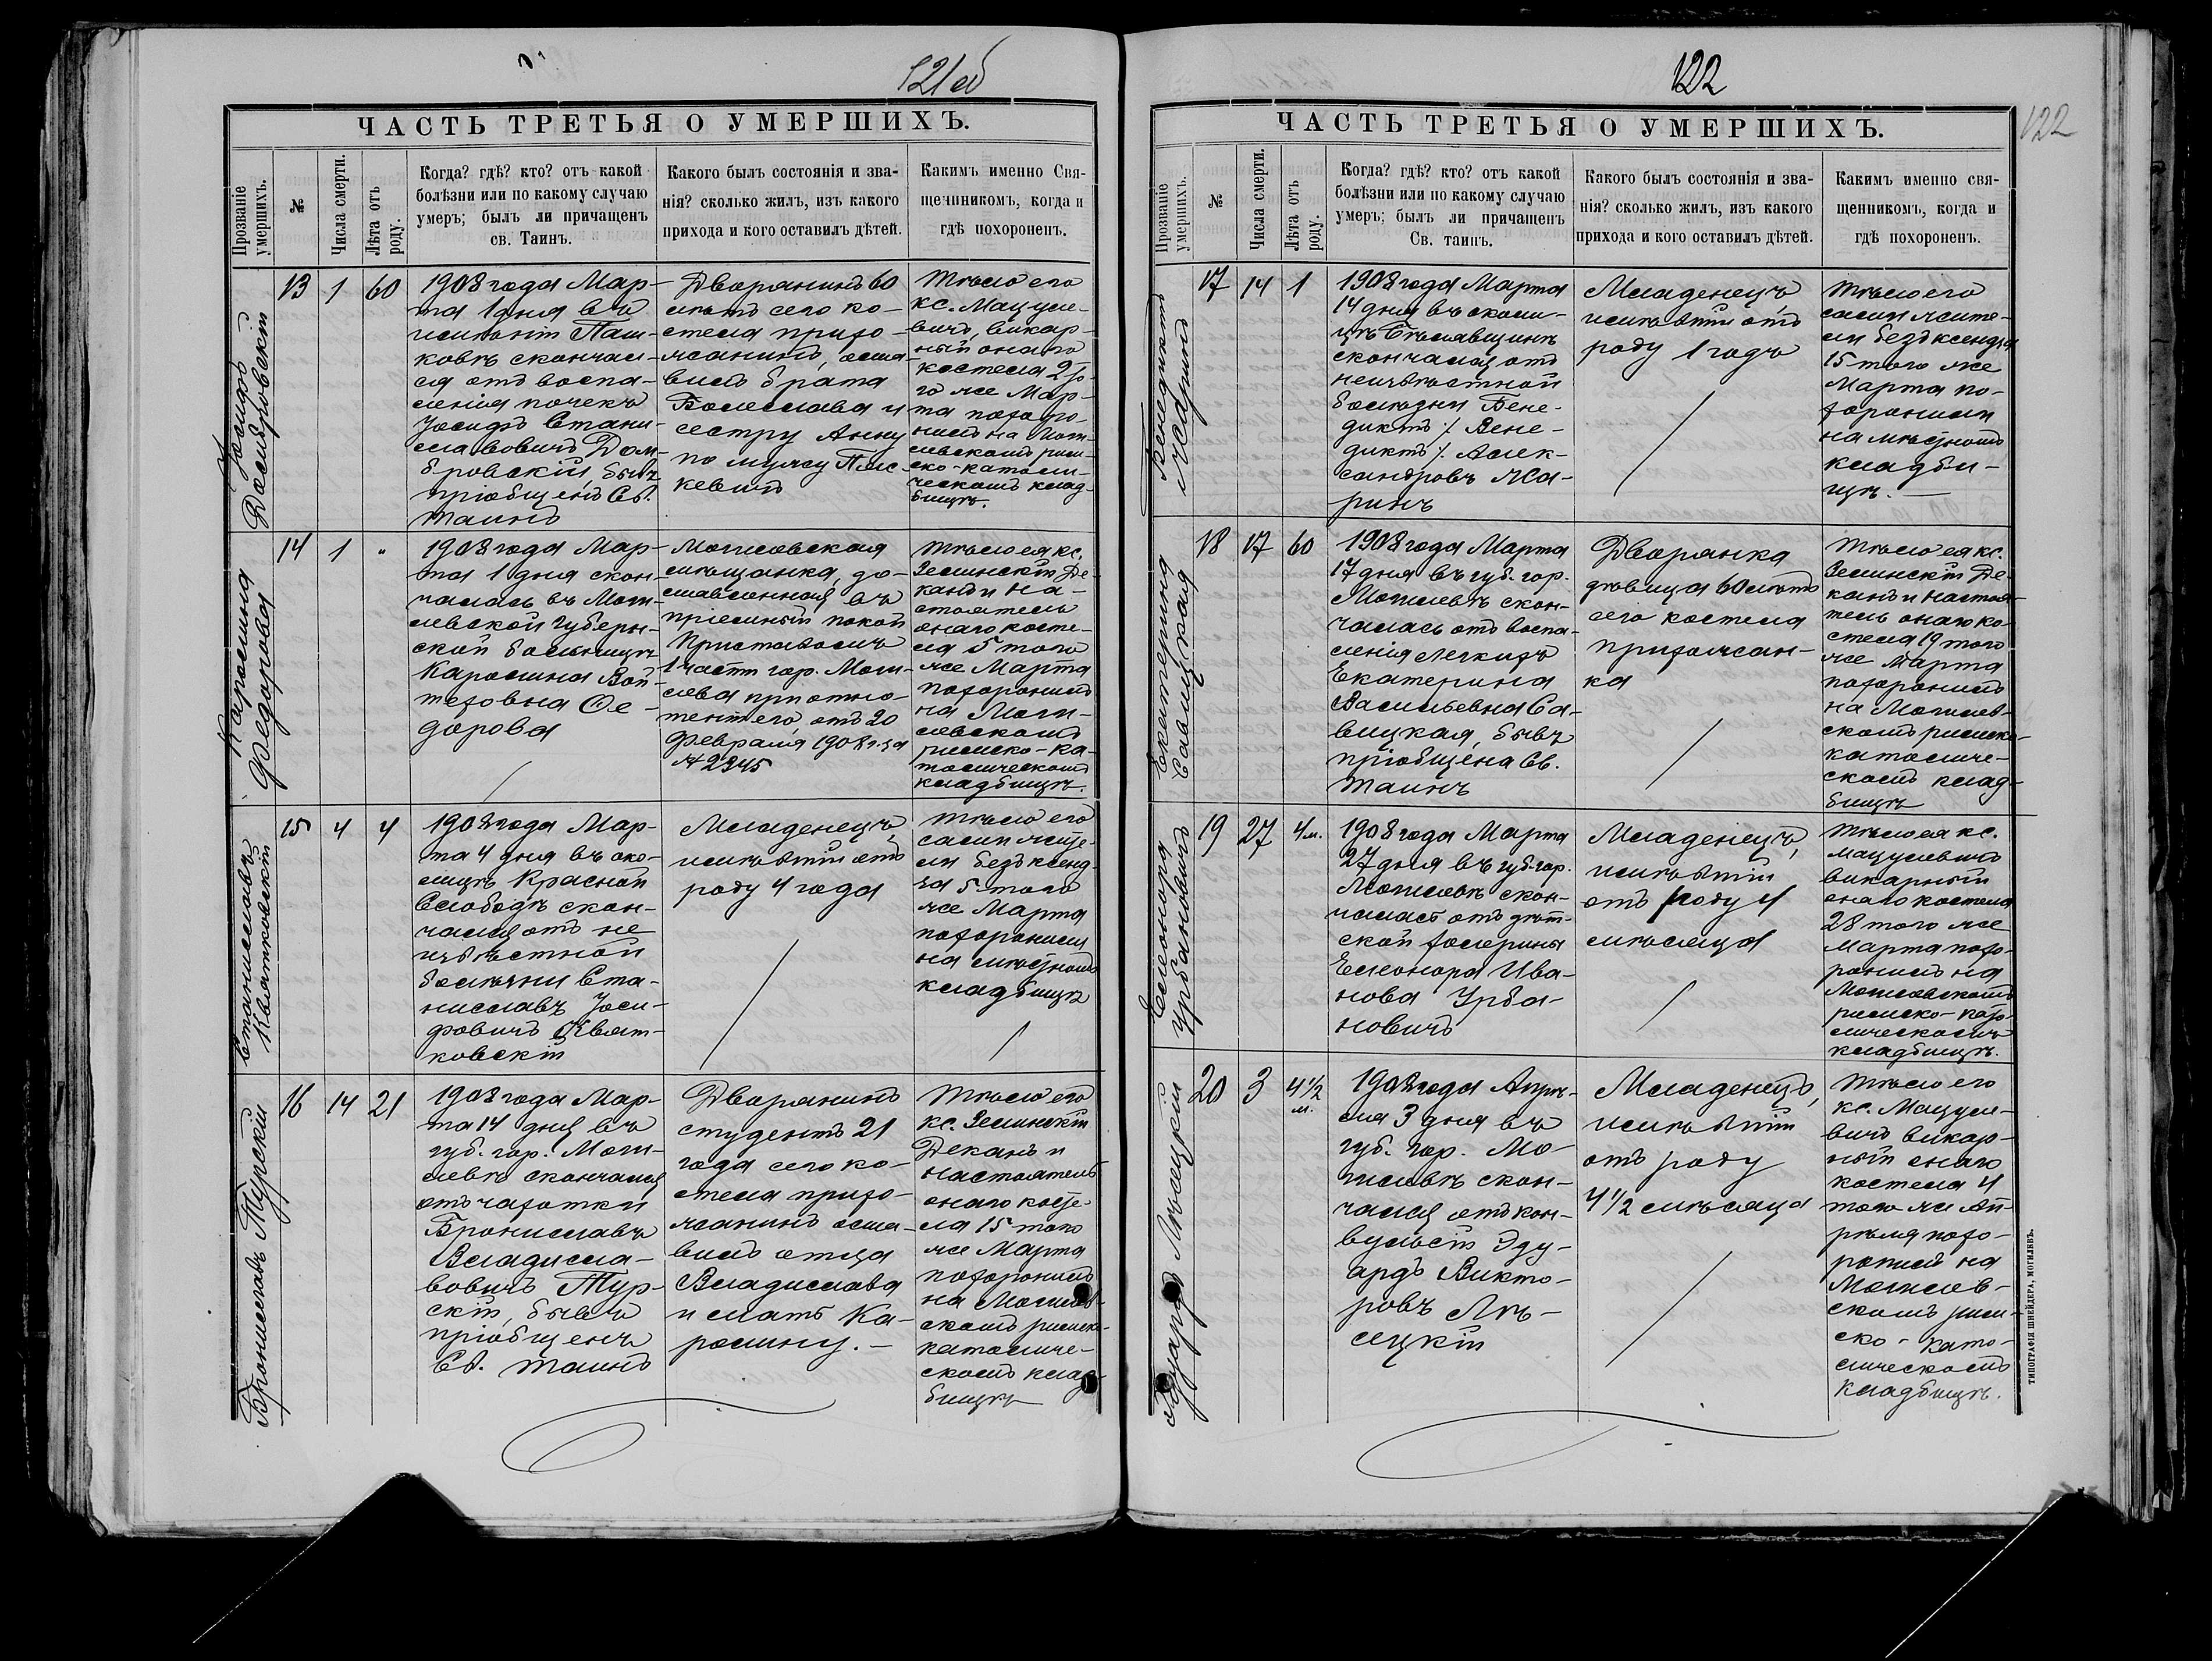 121об
ЧАСТЬ ТРЕТЬЯ О УМЕРШИХЪ.
Прозваніе
умершихъ.
№
Числа смерти.
Лѣта отъ
роду.
Когда? гдѣ? кто? отъ какой
болѣзни или по какому случаю
умеръ; былъ ли причащенъ
св. Таинъ.
Какого былъ состоянія и зва-
нія? сколько жилъ, изъ какого
прихода и кого оставилъ дѣтей.
Какимъ именно Свя-
щенникомъ, когда и
гдѣ похороненъ.
Іосифъ
Домбровскій
13
1
60
1908 года Мар-
та 1 дня въ
имѣніи Паш-
ковѣ скончал-
ся отъ воспа-
ленія почекъ
Іосифъ Стани-
славовичъ Дом-
бровскій, бывъ
пріобщенъ Св.
Таинъ
Дворянинъ 60
лѣтъ сего ко-
стела прихо-
жанинъ, оста-
вилъ брата
Болеслава и
сестру Анну
по мужу
кевичъ
Тѣло его
кс. Мацуле-
вичъ, викар-
ный онаго
костела 2
го же Мар-
та похоро-
нилъ на Моги-
левскомъ рим-
ско-католи-
ческомъ клад-
бищѣ.
Каролина
Федоровая
14
1
"
1908 года Мар-
та 1 дня скон-
чалась въ Моги-
левской Губерн-
ской больницѣ
Каролина Вой-
теховна Ѳе-
дорова
Могилевская
мѣщанка, до-
ставленная въ
пріемный покой
Приставомъ
1 части гор. Моги-
лева при отно-
шеніи его отъ 20
Февраля 1908 г. за
№ 2345
Тѣло ея кс.
Зелинскій Де-
канъ и На-
стоятель
онаго косте-
ла 5 того
же Марта
похоронилъ
на Моги-
левскомъ
римско-ка-
толическомъ
кладбищѣ.
Станиславъ
Квятковскій
15
4
4
1908 года Мар-
та 4 дня въ око-
лицѣ Красной
Слободѣ скон-
чался отъ не
извѣстной
болѣзни Ста-
ниславъ Іоси-
фовичъ Квят-
ковскій
Младенецъ,
имѣвшій отъ
роду 4 года
Тѣло его
сами жите-
ли безъ ксенд-
за 5 того
же Марта
похоронили
на мѣстномъ
кладбищѣ
Брониславъ Турскій
16
14
21
1908 года Мар-
та 14 дня въ
губ. гор. Моги-
левѣ скончался
отъ чахотки
Брониславъ
Владисла-
вовичъ Тур-
скій, бывъ
пріобщенъ
Св. Таинъ
Дворянинъ
студентъ 21
года сего ко-
стела прихо-
жанинъ оста-
вилъ отца
Владислава
и мать Ка-
ролину. —
Тѣло его
кс. Зелинскій
Деканъ и
настоятель
онаго косте-
ла 15 того
же Марта
похоронилъ
на Могилев-
скомъ римско-
католиче-
скомъ клад-
бищѣ
122
122
ЧАСТЬ ТРЕТЬЯ О УМЕРШИХЪ.
Прозваніе
умершихъ.
№
Числа смерти.
Лѣта отъ
роду.
Когда? гдѣ? кто? отъ какой
болѣзни или по какому случаю
умеръ; былъ ли причащенъ
Св. таинъ.
Какого былъ состоянія и зва-
нія? сколько жилъ, изъ какого
прихода и кого оставилъ дѣтей.
Какимъ именно свя-
щенникомъ, когда и
гдѣ похороненъ.
Бенедиктъ
Жаринъ
17
14
1
1908 года Марта
14 дня въ околи-
цѣ
скончался отъ
неизвѣстной
болѣзни Бене-
диктъ /. Вене-
диктъ /. Алек-
сандровъ Жа-
ринъ
Младенецъ,
имѣвшій отъ
роду 1 годъ
Тѣло его
сами жите-
ли безъ ксендза
15 того же
Марта по-
хоронили
на мѣстномъ
кладби-
щѣ. —
Екатерина
Савицкая
18
17
60
1908 года Марта
17 дня въ губ. гор.
Могилевѣ скон-
чалась отъ воспа-
ленія легкихъ
Екатерина
Васильевна Са-
вицкая, бывъ
пріобщена Св.
Таинъ
Дворянка
дѣвица 60 лѣтъ
сего костела
прихожан-
ка
Тѣло ея кс.
Зелинскій Де-
канъ и настоя-
тель онаго ко-
стела 19 того
же Марта
похоронилъ
на Могилев-
скомъ римско-
католиче-
скомъ клад-
бищѣ
Елеонора
Урбановичъ
19
27
4 м.
1908 года Марта
27 дня въ губ. гор.
Могилевѣ скон-
чалась отъ дѣт-
ской холерины
Елеонора Ива-
нова Урба-
новичъ
Младенецъ,
имѣвшій
отъ роду 4
мѣсяца
Тѣло ея кс.
Мацулевичъ
викарный
онаго костела
28 того же
Марта похо-
ронилъ на
Могилевскомъ
римско-като-
лическомъ
кладбищѣ.
Эдуардъ Лѣсецкій
20
3
4 1/2
м.
1908 года Апрѣ-
ля 3 дня въ
губ. гор. Мо-
гилевѣ скон-
чался отъ кон-
вульсій Эду-
ардъ Викто-
ровъ Лѣ-
сецкій
Младенецъ,
имѣвшій
отъ роду
4 1/2 мѣсяца
Тѣло его
кс. Мацуле-
вичъ викар-
ный онаго
костела 4
того же Ап-
рѣля похо-
ронилъ на
Могилев-
скомъ рим-
ско-като-
лическомъ
кладбищѣ.
ТИПОГРАФІЯ ШНЕЙДЕРА, МОГИЛЕВЪ.